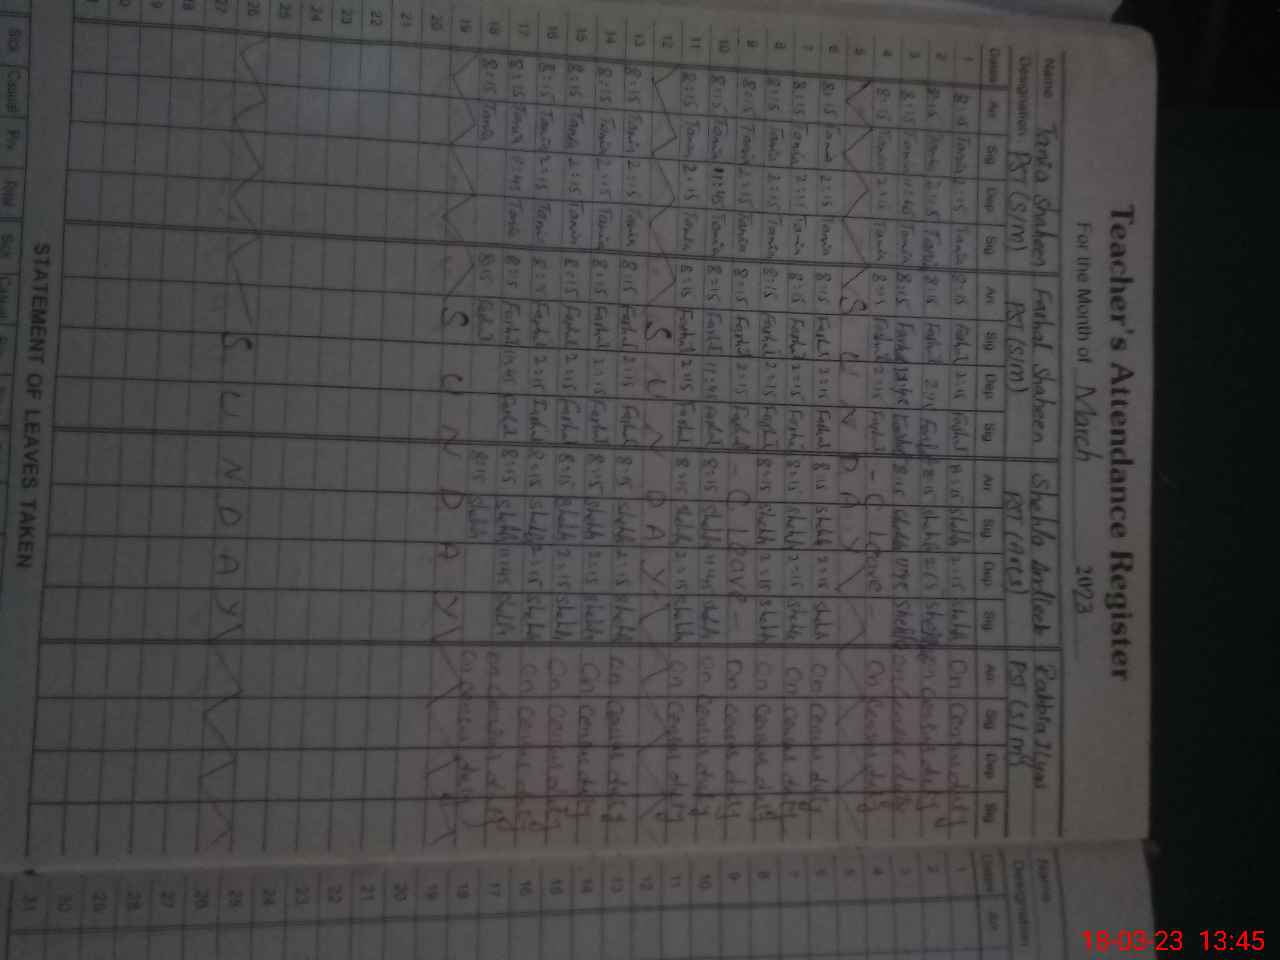 Teacher's Attendance Register
For the Month of March 2023
Name Tania Shaheen Farhat Shaheen Shehla Rabbia Ilyas
Designation PST (S/M) PST (S/M) PST (Arts) PST (S/M)
Dates Arr Sig Dep Sig Arr Sig Dep Sig Arr Sig Dep Sig Arr Sig Dep Sig
1 8:15 Tania 2:15 Tania 8:15 Farhat 2:15 Farhat 8:15 Shehla 2:15 Shehla On Census duty
2 8:15 Tania 2:15 Tania 8:15 Farhat 2:15 Farhat 8:15 Shehla 2:15 Shehla On Census duty
3 8:15 Tania 11:45 Tania 8:15 Farhat Farhat 8:15 Shehla Shehla On Census duty
4 8:15 Tania 2:15 Tania 8:15 Farhat 2:15 Farhat - C Leave - On Census duty
5 SUNDAY
6 8:15 Tania 2:15 Tania 8:15 Farhat 2:15 Farhat 8:15 Shehla 2:15 Shehla On Census duty
7 8:15 Tania 2:15 Tania 8:15 Farhat 2:15 Farhat 8:15 Shehla 2:15 Shehla On Census duty
8 8:15 Tania 2:15 Tania 8:15 Farhat 2:15 Farhat 8:15 Shehla 2:15 Shehla On Census duty
9 8:15 Tania 2:15 Tania 8:15 Farhat 2:15 Farhat - C Leave - On Census duty
10 8:15 Tania 11:45 Tania 8:15 Farhat 11:45 Farhat 8:15 Shehla 11:45 Shehla On Census duty
11 8:15 Tania 2:15 Tania 8:15 Farhat 2:15 Farhat 8:15 Shehla 2:15 Shehla On Census duty
12 SUNDAY
13 8:15 Tania 2:15 Tania 8:15 Farhat 2:15 Farhat 8:15 Shehla 2:15 Shehla On Census duty
14 8:15 Tania 2:15 Tania 8:15 Farhat 2:15 Farhat 8:15 Shehla 2:15 Shehla On Census duty
15 8:15 Tania 2:15 Tania 8:15 Farhat 2:15 Farhat 8:15 Shehla 2:15 Shehla On Census duty
16 8:15 Tania 2:15 Tania 8:15 Farhat 2:15 Farhat 8:15 Shehla 2:15 Shehla On Census duty
17 8:15 Tania 11:45 Tania 8:15 Farhat 11:45 Farhat 8:15 Shehla 11:45 Shehla On Census duty
18 8:15 Tania 8:15 Farhat 8:15 Shehla On Census duty
19 SUNDAY
20
21
22
23
24
25
26 SUNDAY
27
STATEMENT OF LEAVES TAKEN
Sick Casual Priv Sick Casual
Name
Designation
Dates Arr
1
2
3
4
5
6
7
8
9
10
11
12
13
14
15
16
17
18
19
20
21
22
23
24
25
26
27
28
29
30
31
18-03-23 13:45